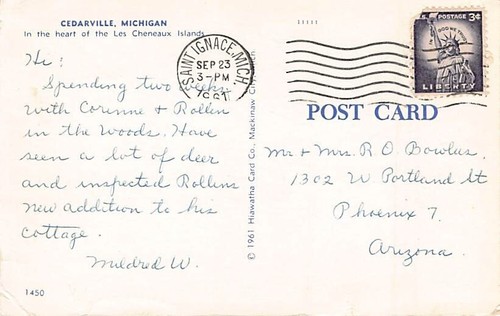 CEDARVILLE, MICHIGAN
In the heart of the Les Cheneaux Islands
Hi:
Spending two weeks
with Corinne & Rollin
in the woods. Have
seen a lot of deer
and inspected Rollins
new addition to his
cottage.
Mildred W.
1450
© 1961 Hiawatha Card Co., Mackinaw City, Mich.
SAINT IGNACE, MICH.
SEP 23
3-PM
1961
U.S. POSTAGE 3¢
IN GOD WE TRUST
LIBERTY
POST CARD
Mr & Mrs. R. O. Bowlus.
1302 W. Portland St
Phoenix 7.
Arizona.